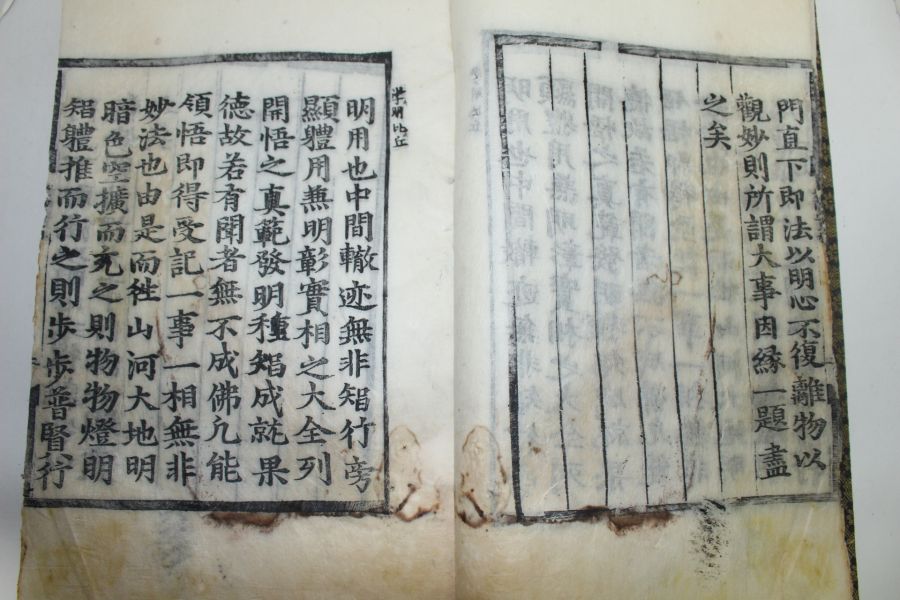 明用也中間轍迹無非智行旁
顯體用兼明彰實相之大全列
開悟之真範發明種智成就果
德故若有聞者無不成佛凡能
領悟即得受記一事一相無非
妙法也由是而往山河大地明
暗色空擴而充之則物物燈明
智體推而行之則步步普賢行
門直下即法以明心不復離物以
觀妙則所謂大事因緣一題盡
之矣
明比丘